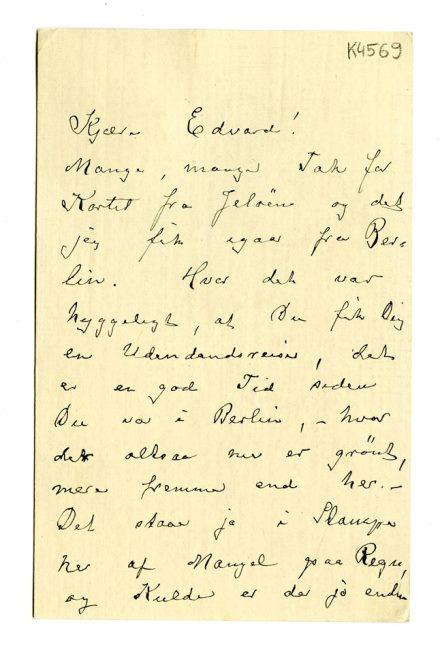 K4569
Kjære Edvard!
Mange, mange Tak for
Kortet fra Jeløen og det
jeg fik igaar fra Ber-
lin. Hvor det var
hyggeligt, at Du fik Dig
en Udenlandsreise, det
er en god Tid siden
Du var i Berlin, – hvor
det altsaa nu er grönt,
mere fremme end her. –
Det staar jo i Stampe
her af Mangel paa Regn,
og Kulde er der jo endnu